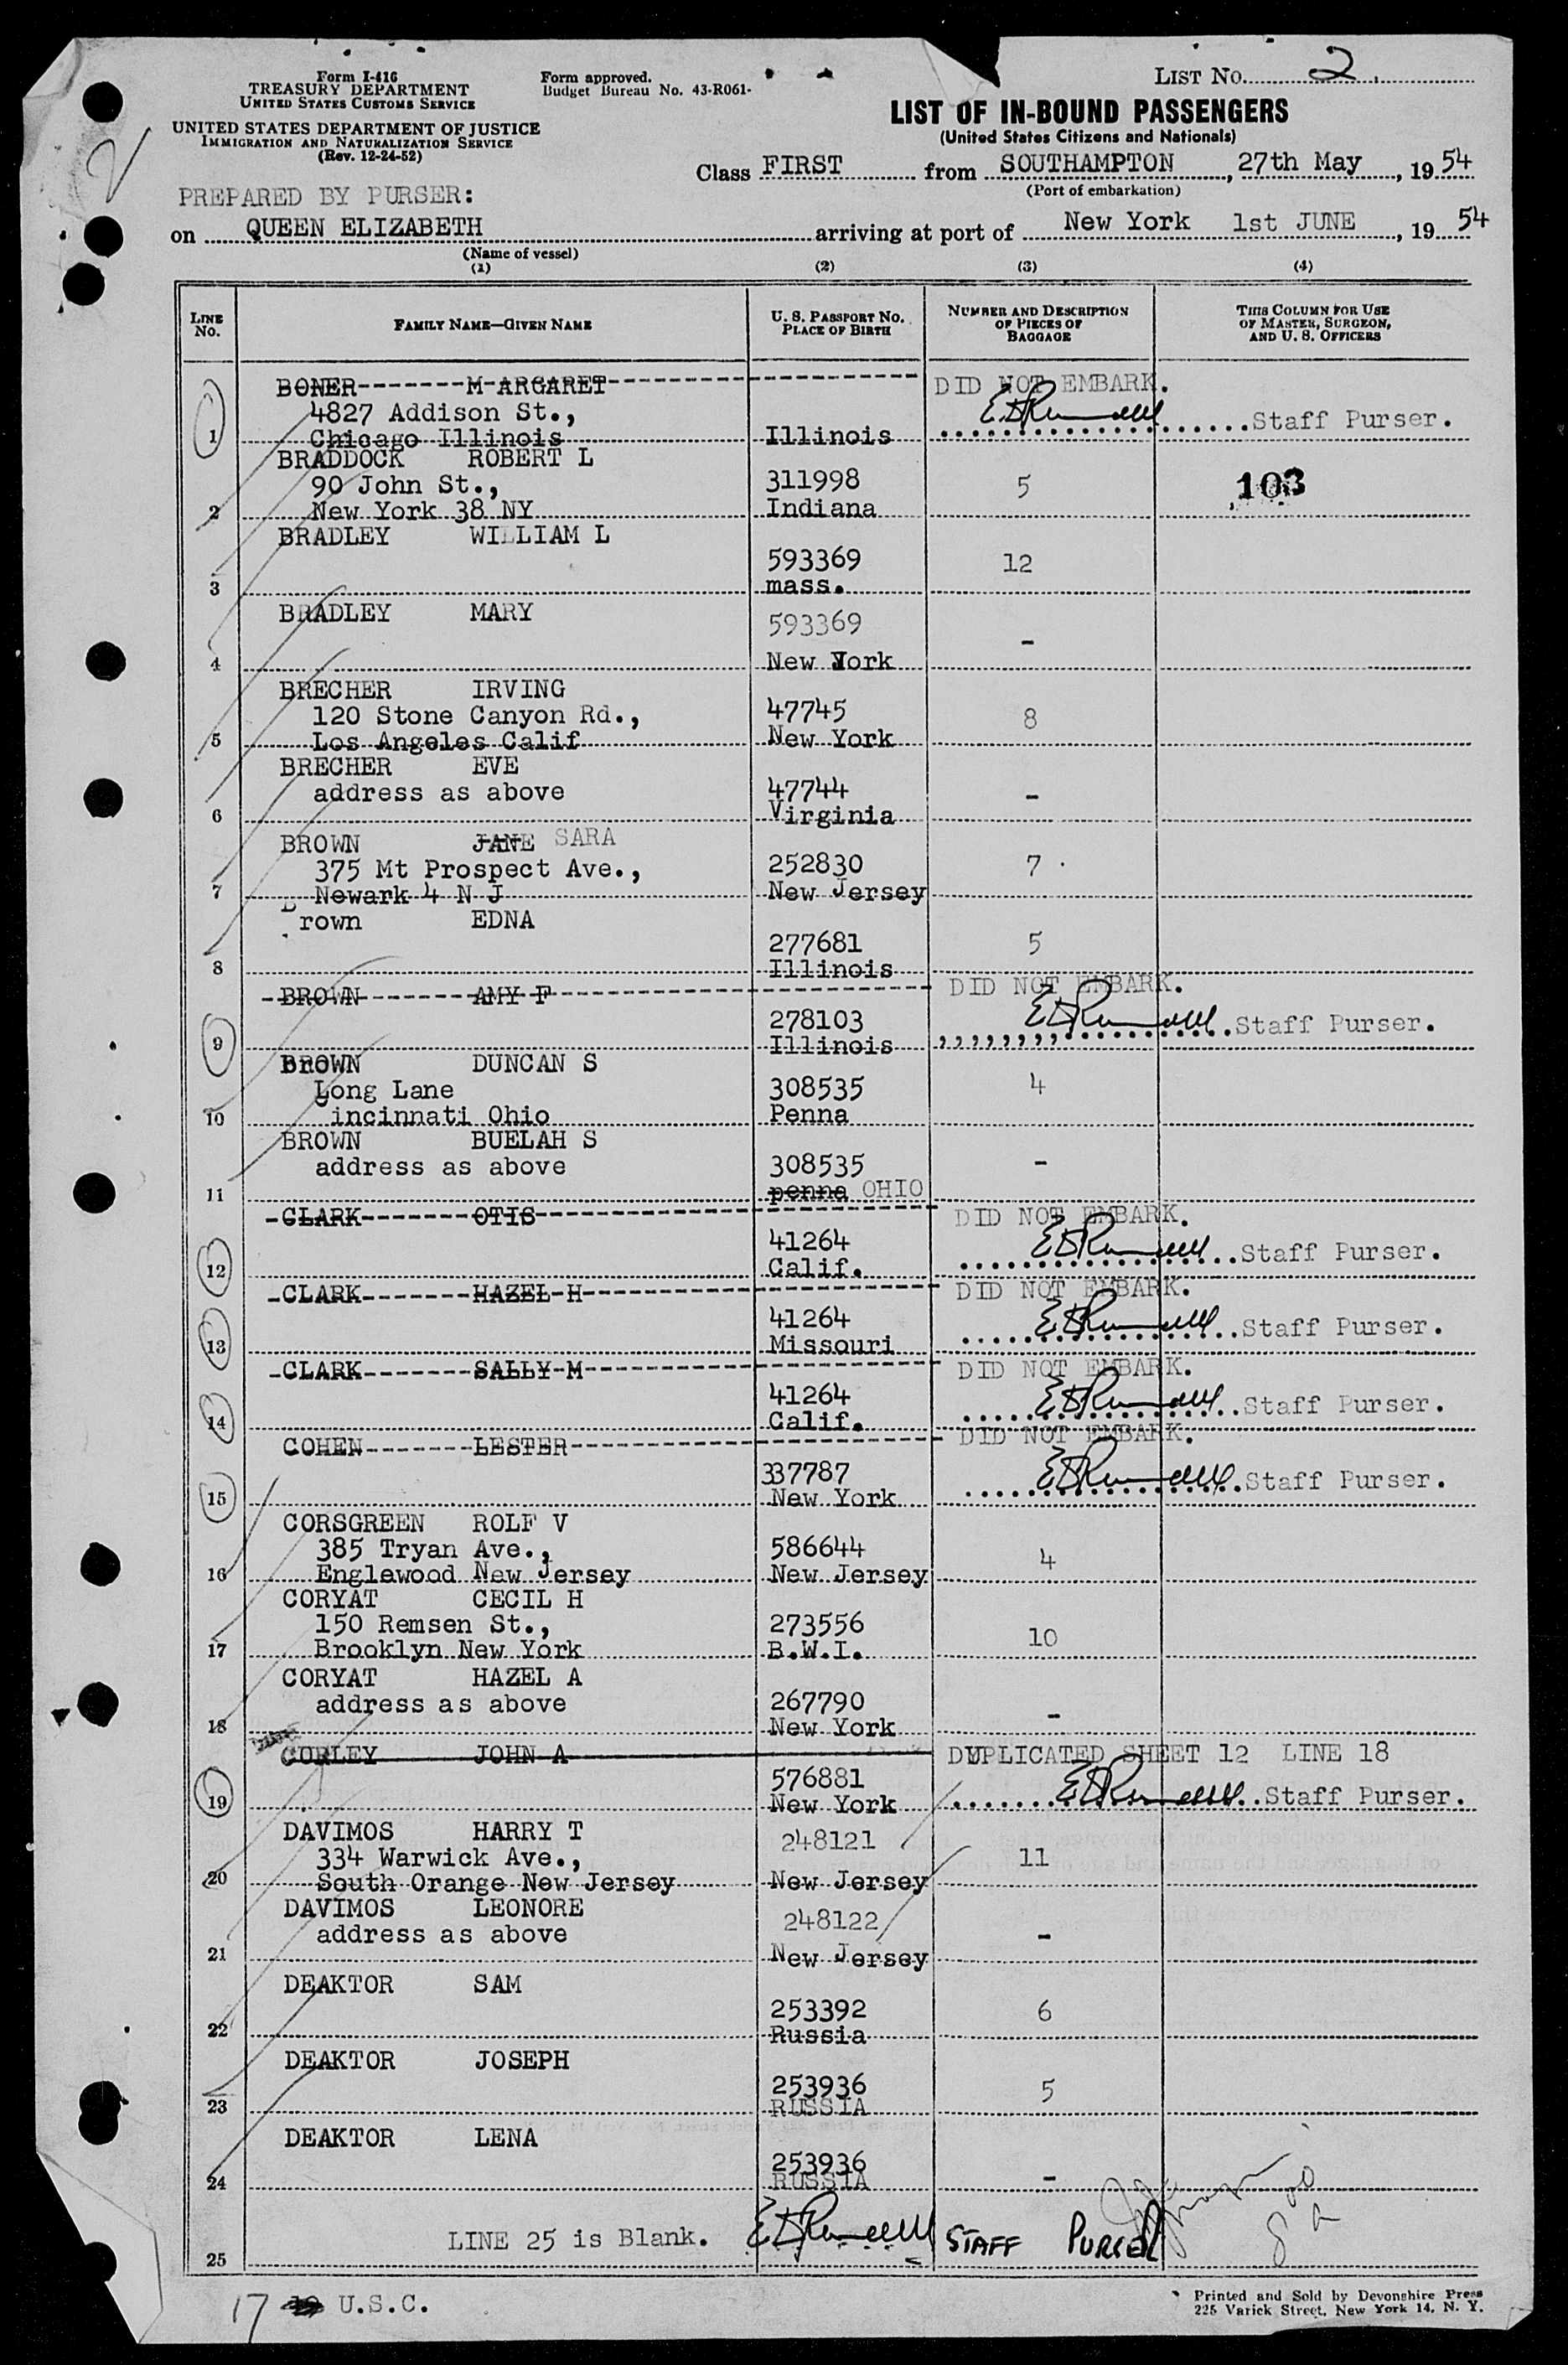 Form I-416
TREASURY DEPARTMENT
UNITED STATES CUSTOMS SERVICE
UNITED STATES DEPARTMENT OF JUSTICE
IMMIGRATION AND NATURALIZATION SERVICE
(Rev. 12-24-52)
Form approved.
Budget Bureau No. 43-R061-
LIST NO. 2
LIST OF IN-BOUND PASSENGERS
(United States Citizens and Nationals)
Class FIRST from SOUTHAMPTON, 27th May, 1954
(Port of embarkation)
PREPARED BY PURSER:
on QUEEN ELIZABETH arriving at port of New York 1st JUNE, 1954
(Name of vessel)
(1) (2) (3) (4)
LINE NO. FAMILY NAME—GIVEN NAME U. S. PASSPORT NO. PLACE OF BIRTH NUMBER AND DESCRIPTION OF PIECES OF BAGGAGE THIS COLUMN FOR USE OF MASTER, SURGEON, AND U. S. OFFICERS
BONER M ARGARET DID NOT EMBARK.
4827 Addison St.,
1 Chicago Illinois Illinois Staff Purser.
BRADDOCK ROBERT L
90 John St., 311998 5 103
2 New York 38 NY Indiana
BRADLEY WILLIAM L
593369 12
3 mass.
BRADLEY MARY 593369 -
4 New York
BRECHER IRVING
120 Stone Canyon Rd., 47745 8
5 Los Angeles Calif New York
BRECHER EVE
address as above 47744 -
6 Virginia
BROWN JANE SARA
375 Mt Prospect Ave., 252830 7
7 Newark 4 N J New Jersey
Brown EDNA
277681 5
8 Illinois
BROWN AMY F DID NOT EMBARK.
278103 Staff Purser.
9 Illinois
BROWN DUNCAN S
Long Lane 308535 4
10 Cincinnati Ohio Penna
BROWN BUELAH S
address as above 308535 -
11 penna OHIO
CLARK OTIS DID NOT EMBARK.
41264 Staff Purser.
12 Calif.
CLARK HAZEL H DID NOT EMBARK.
41264 Staff Purser.
13 Missouri
CLARK SALLY M DID NOT EMBARK.
41264 Staff Purser.
14 Calif.
COHEN LESTER DID NOT EMBARK.
337787 Staff Purser.
15 New York
CORSGREEN ROLF V
385 Tryan Ave., 586644 4
16 Englewood New Jersey New Jersey
CORYAT CECIL H
150 Remsen St., 273556 10
17 Brooklyn New York B.W.I.
CORYAT HAZEL A
address as above 267790 -
18 New York
CURLEY JOHN A DUPLICATED SHEET 12 LINE 18
576881 Staff Purser.
19 New York
DAVIMOS HARRY T 248121
334 Warwick Ave., 11
20 South Orange New Jersey New Jersey
DAVIMOS LEONORE 248122
address as above -
21 New Jersey
DEAKTOR SAM
253392 6
22 Russia
DEAKTOR JOSEPH
253936 5
23 RUSSIA
DEAKTOR LENA
253936 -
24 RUSSIA
LINE 25 is Blank. STAFF PURSER
25
17 U.S.C.
Printed and Sold by Devonshire Press
225 Varick Street, New York 14, N. Y.